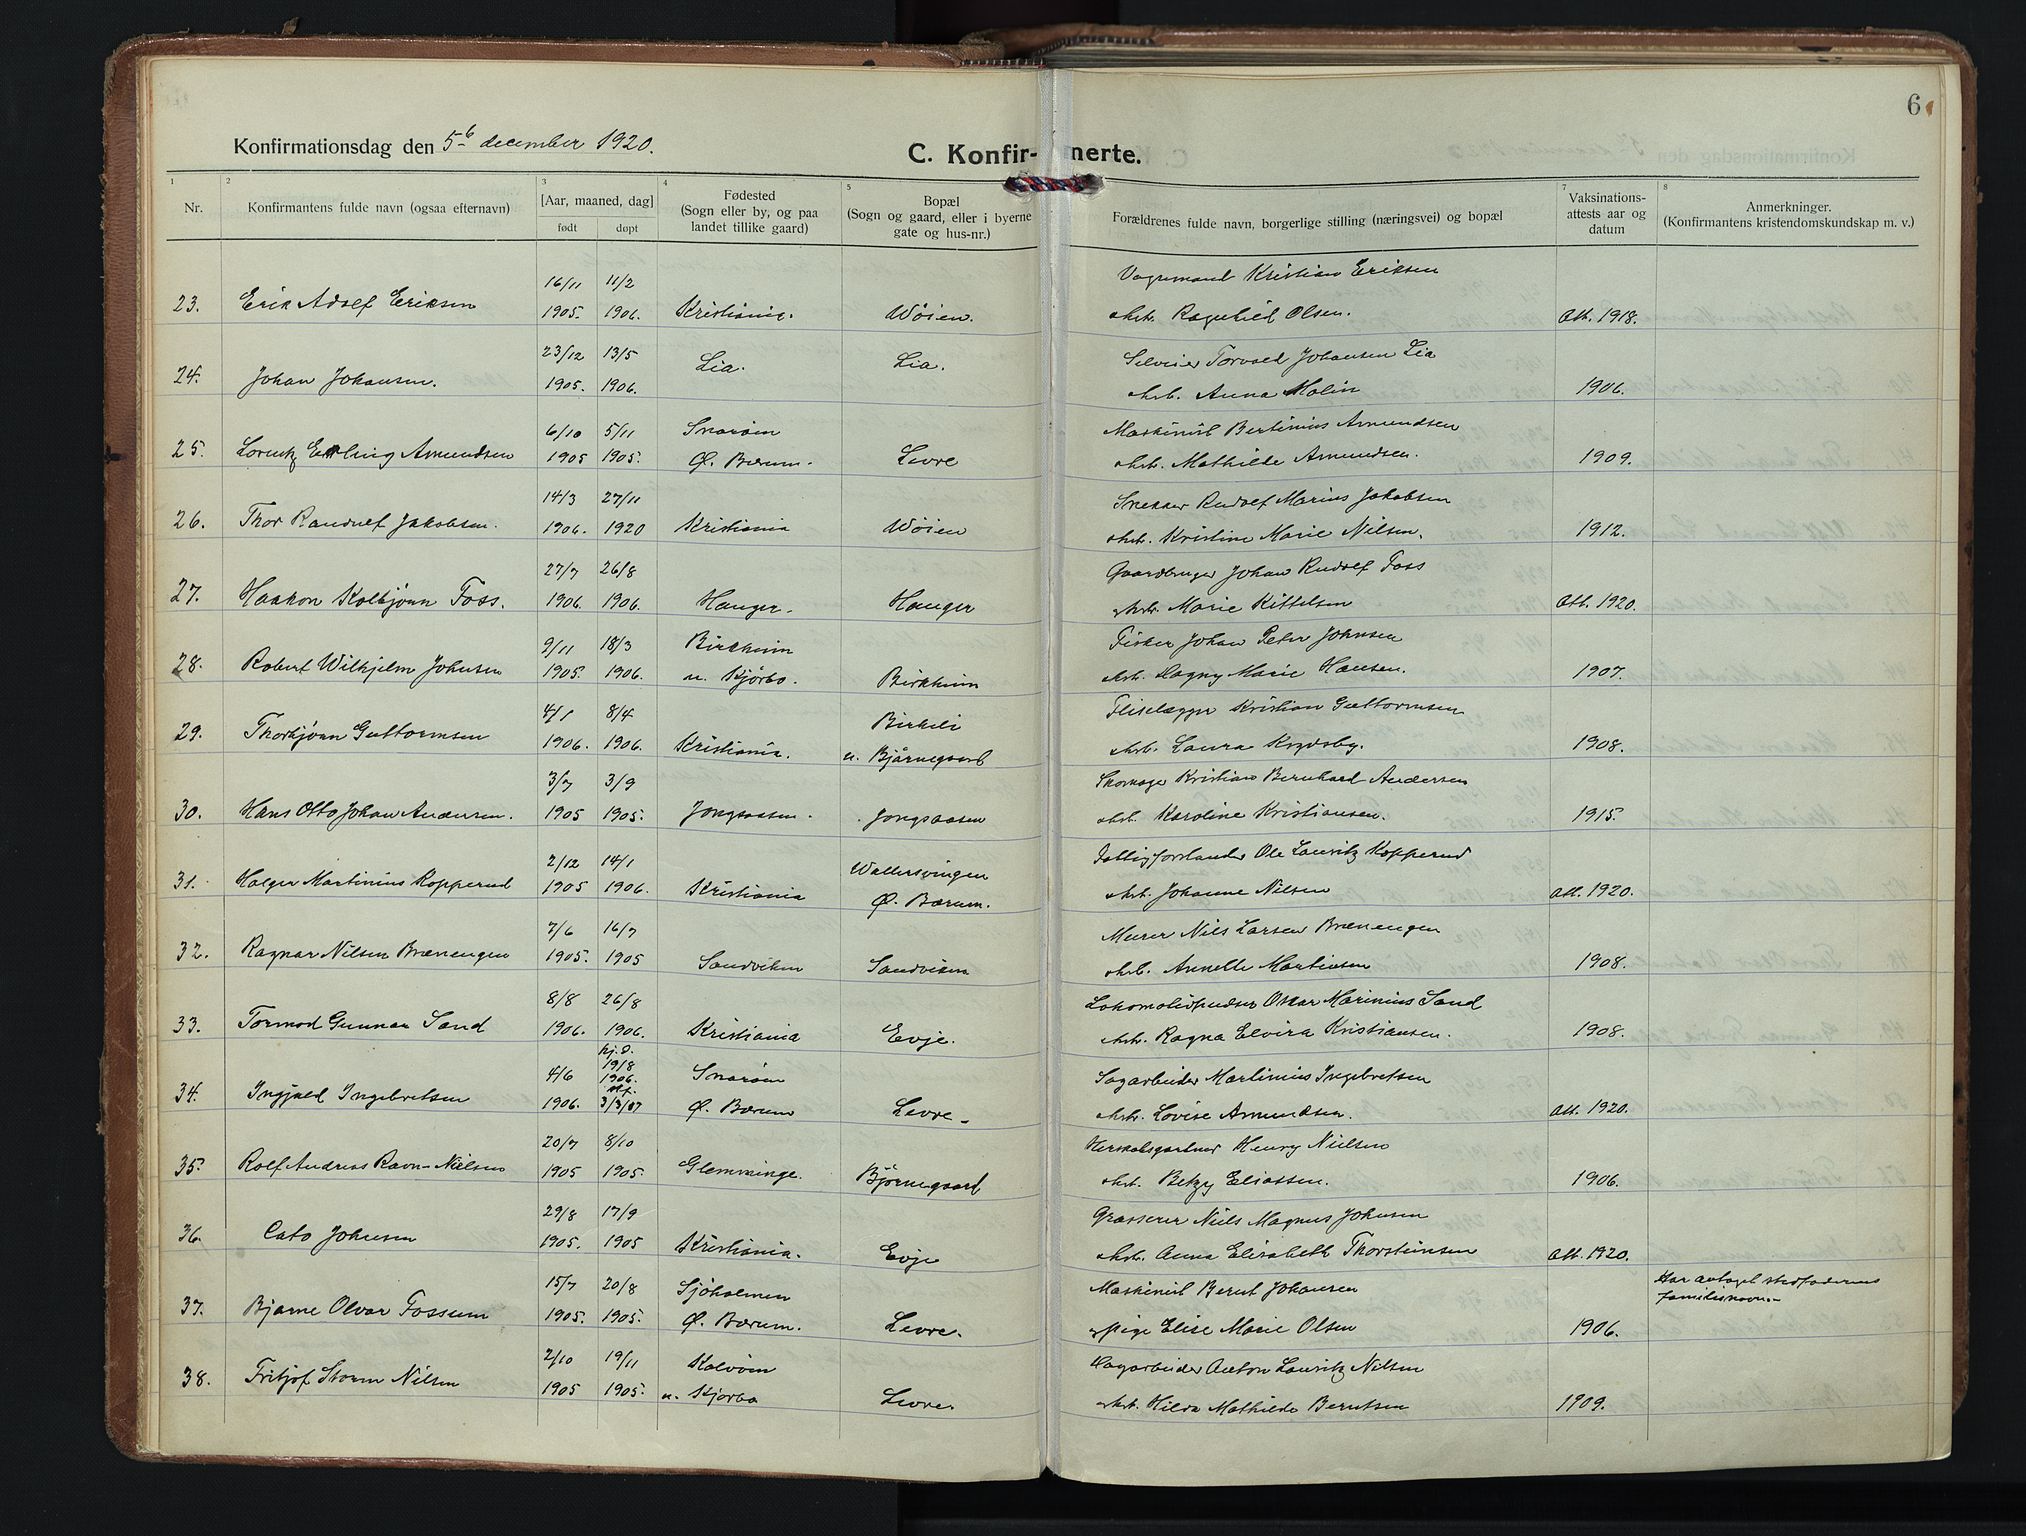 6
Konfirmationsdag den 5te december 1920.
C. Konfirmerte.
1 2 3 4 5 7 8
Nr.
Konfirmantens fulde navn (ogsaa efternavn)
[Aar, maaned, dag]
født døpt
Fødested
(Sogn eller by, og paa
landet tillike gaard)
Bopæl
(Sogn og gaard, eller i byerne
gate og hus-nr.)
Forældrenes fulde navn, borgerlige stilling (næringsvei) og bopæl
Vaksinations-
attests aar og
datum
Anmerkninger.
(Konfirmantens kristendomskundskap m. v.)
16/11 11/2 Vognmand Kristian Eriksen
23. Erik Adolf Eriksen 1905. 1906. Kristiania. Wøien. Ragnhild Olsen. Att. 1918.
23/12 13/5 Lia. Lia. Torvald Johansen Lia
24. Johan Johansen. 1905. 1906. Anna Molin 1906.
6/10 5/11 Snarøen Maskinist Bertinius Amundsen
25. Lorentz Erling Amundsen 1905 1905. Ø. Bærum. Levre Mathilde Amundsen. 1909.
14/3 27/11 Snekker Rudolf Marius Jakobsen
26. Thor Randulf Jakobsen. 1906. 1920 Kristiania Wøien Kristine Marie Nilsen. 1912.
27/7 26/8 Gaardbruger Johan Rudolf Foss
27. Haakon Kolbjørn Foss. 1906. 1906. Hauger. Hauger Marie Kittelsen Att. 1920.
9/11 18/3 Birkheim Fisker Johan Peter Johnsen
28. Robert Wilhjelm Johnsen 1905. 1906. u. Kjørbo. Birkheim Dagny Marie Hansen. 1907.
4/1 8/4 Birkeli Fliselægger Kristian Guttormsen
29. Thorbjørn Guttormsen 1906. 1906. Kristiania. u. Bjørnegaard Laura Krydsby. 1908.
3/7 3/9 Skomager Kristian Bernhard Andersen
30. Hans Otto Johan Andersen. 1905 1905. Jongsaasen. Jongsaasen Karoline Kristiansen. 1915.
2/12 14/1 Wallersvingen Fattigforstander Ole Lauritz Kopperud
31. Holger Martinius Kopperud 1905 1906. Kristiania Ø. Bærum. Johanne Nilsen Att. 1920.
7/6 16/7 Murer Niels Larsen Brænengen
32. Ragnar Nilsen Brænengen 1905. 1905 Sandviken Sandviken Annette Martinsen 1908.
8/8 26/8 Lokomotivpudser Oskar Marinius Sand
33. Tormod Gunnar Sand 1906. 1906. Kristiania Evje. Ragna Elvira Kristiansen. 1908.
hj. d.
19/8
4/6 1906. Snarøen Sagarbeider Martinius Ingebretsen
st. f.
34. Ingjald Ingebretsen 1906. 3/3/07 Ø. Bærum Levre. Lovise Amundsen. Att. 1920.
20/7 8/10 Herskabsgartner Henry Nielsen
35. Rolf Andreas Ravn-Nielsen 1905 1905. Glemminge. Bjørnegaard Betzy Eliassen. 1906.
29/8 17/9 Grosserer Niels Magnus Johnsen
36. Cato Johnsen 1905. 1905 Kristiania. Evje Anna Elisabeth Thorsteinsen Att. 1920.
15/7 20/8 Sjøholmen Maskinist Bernt Johansen Har antaget stedfaderens
familienavn.
37. Bjarne Olvar Fossum 1905. 1905. Ø. Bærum. Levre. og pige Elise Marie Olsen 1906.
2/10 19/11 Kalvøen Sagarbeider Anton Lauritz Nilsen
38. Fritjof Storm Nilsen 1905 1905. u. Kjørbo Levre. Hilda Mathilde Berntsen 1909.